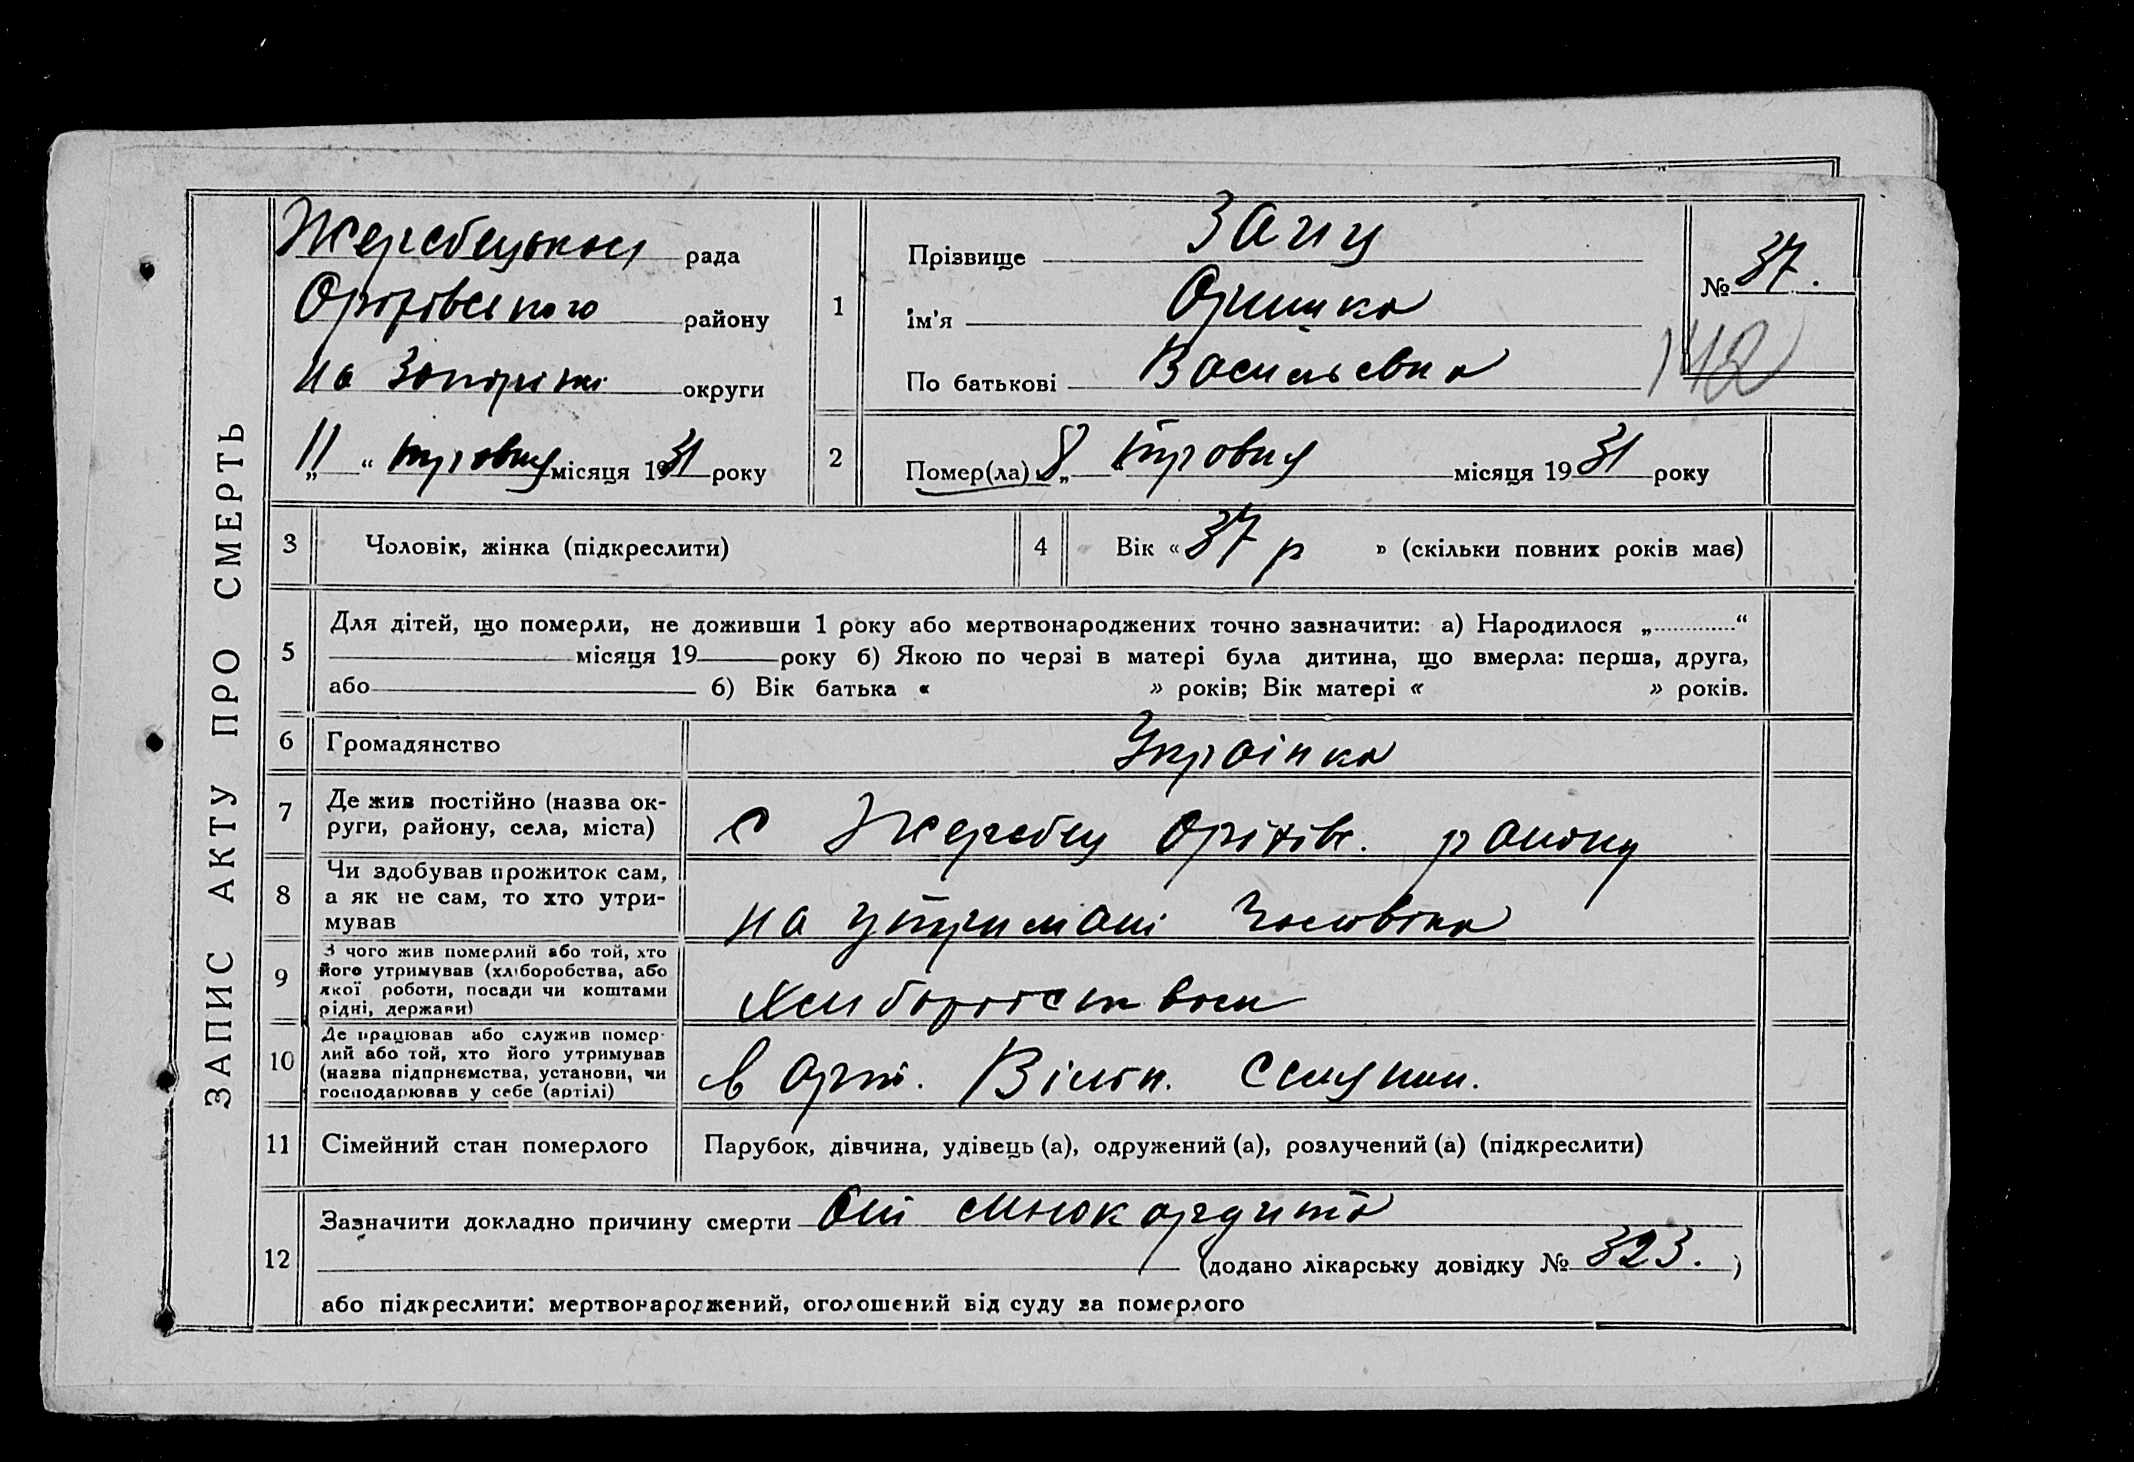 ЗАПИС АКТУ ПРО СМЕРТЬ
Жеребецької рада
Оріхівського району
на Запоріжі округи
„11“ травня місяця 1931 року
1
Прізвище Заяц
Ім'я Оришка
По батькові Васильевна
№ 37.
142
2
Помер(ла) „8 травня місяця 1931 року
3 Чоловік, жінка (підкреслити)
4 Вік « 37 р » (скільки повних років має)
5 Для дітей, що померли, не доживши 1 року або мертвонароджених точно зазначити: а) Народилося „ “
місяця 19 року б) Якою по черзі в матері була дитина, що вмерла: перша, друга,
або б) Вік батька « » років; Вік матері « » років.
6 Громадянство Українка
7 Де жив постійно (назва ок-
руги, району, села, міста) С Жеребец Оріхівс. району
8 Чи здобував прожиток сам,
а як не сам, то хто утри-
мував на утримані Чоловіка
9 З чого жив померлий або той, хто
його утримував (хліборобства, або
якої роботи, посади чи коштами
рідні, держави)
10 Де працював або служив помер-
лий або той, хто його утримував
(назва підприємства, установи, чи
господарював у себе (артілі) в арт. Вільн. Селянин.
11 Сімейний стан померлого Парубок, дівчина, удівець (а), одружений (а), розлучений (а) (підкреслити)
12 Зазначити докладно причину смерти От миокардита
(додано лікарську довідку № 323. )
або підкреслити: мертвонароджений, оголошений від суду за померлого